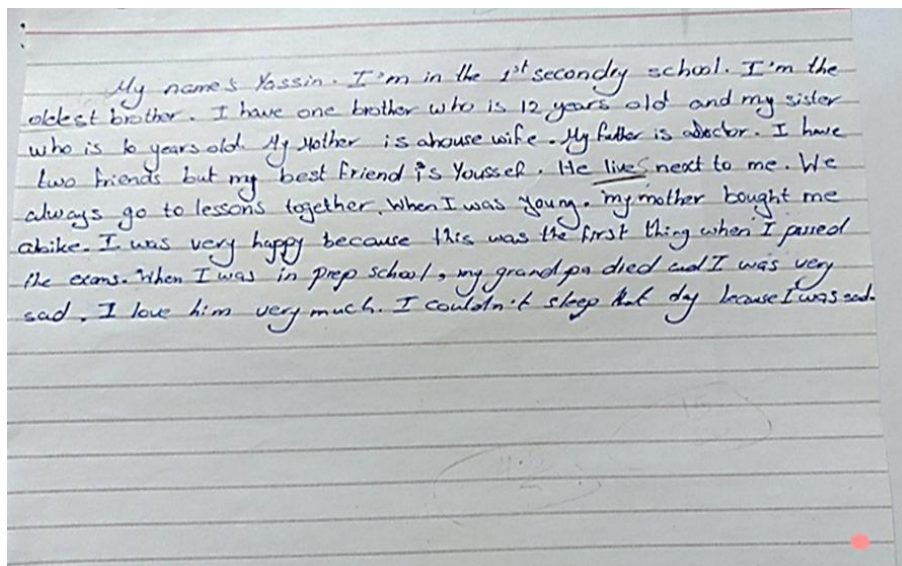 My name's Yassin. I'm in the 1st secondry school. I'm the
oldest brother. I have one brother who is 12 years old and my sister
who is 10 years old. My Mother is ahouse wife. My father is adoctor. I have
two friends but my best friend is Youssef. He lives next to me. We
always go to lessons together. When I was young. my mother bought me
abike. I was very happy because this was the first thing when I passed
the exams. When I was in prep school, my grandpa died and I was very
sad. I love him very much. I couldn't sleep that day because I was sad.